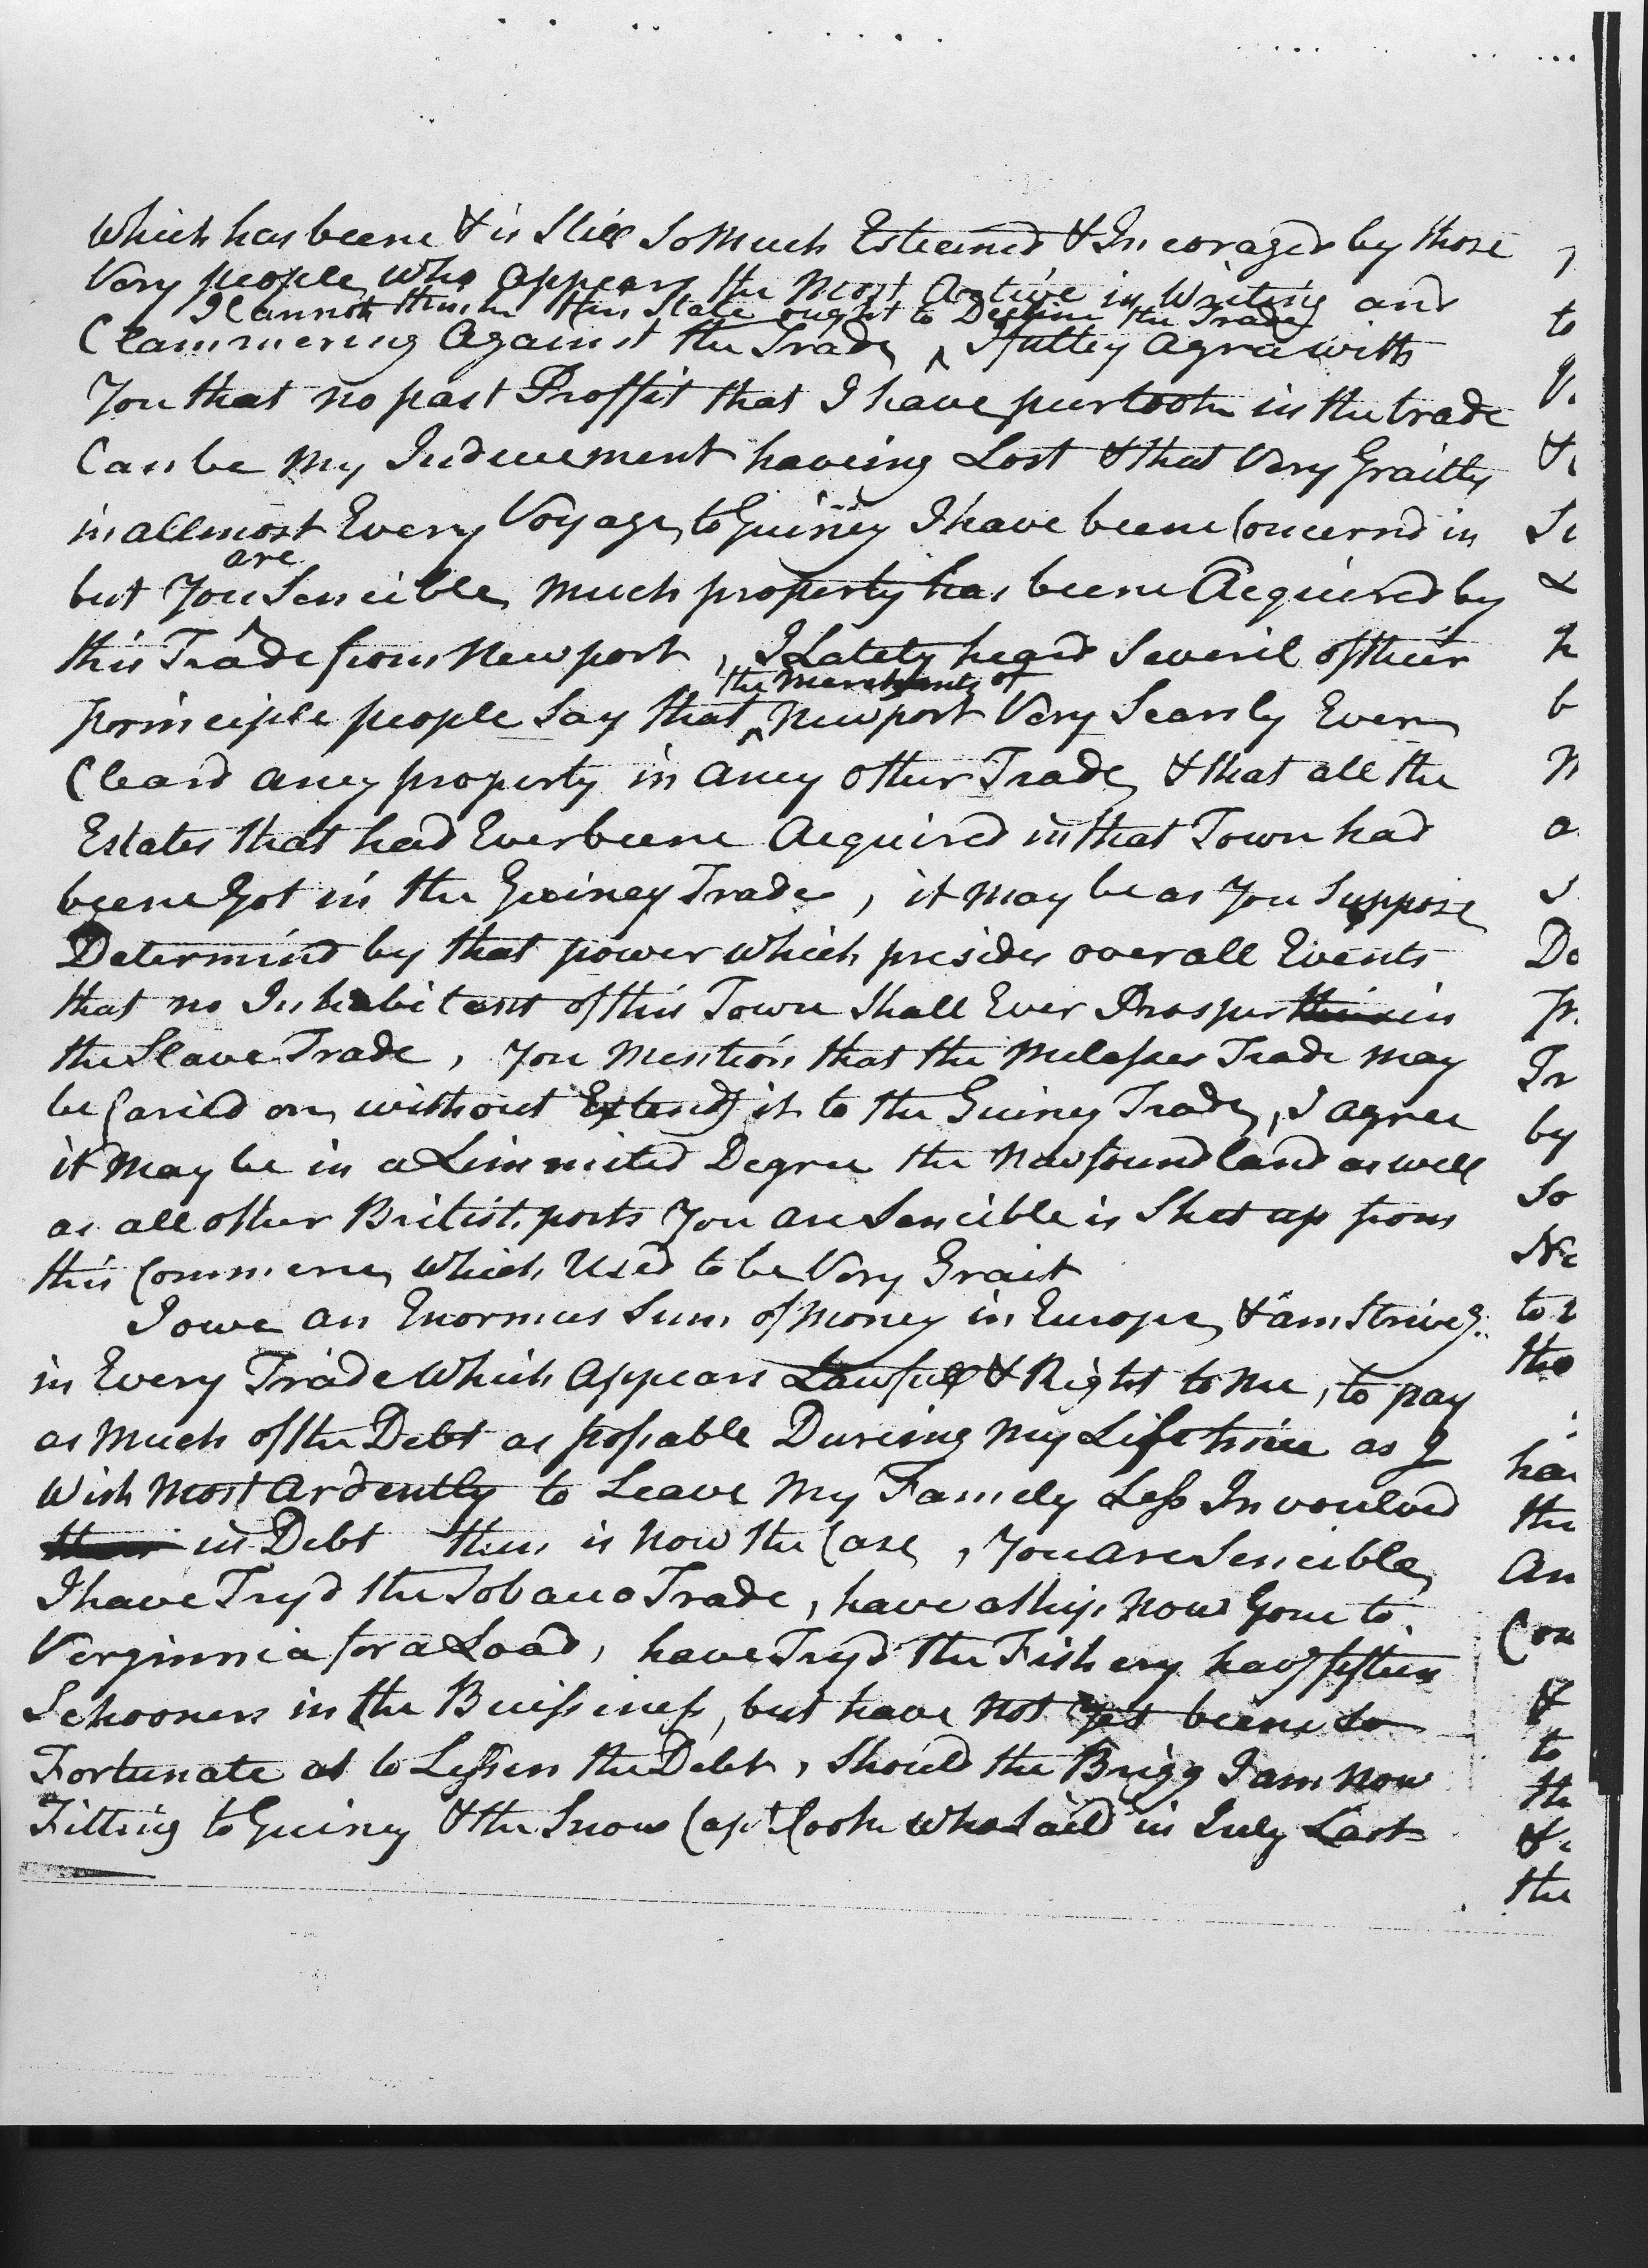 Which has beene & is Still So Much Esteemed & Incoraged by those
Very people who appears the Most Active in Writing and
I Cannot think this State ought to Decline the Trade
Clammering Against the Trade ^ I fulley Agree with
You that no past Proffit that I have purtook in the trade
Can be My Inducement haveing Lost & that Very Graitly
in allmost Every Voyage to Guiney I have beene Concernd in
are
but You ^ Sencible much property has beene Acquired by
this Trade from Newport, I Lately heard Severil of their
the Merchants of
principle people Say that ^ Newport Very Scarsly Ever
Cleard aney property in aney other Trade & that all the
Estates that had Ever beene Acquired in that Town had
beene Got in the Guiney Trade, it may be as You Suppose
Determind by that power which presides over all Events
that no Inhabitant of this Town Shall Ever Prosper in
the Slave Trade, You Mention that the Melasses Trade may
be Caried on without Extendg it to the Guiney Trade, I agree
it May be in a Limmited Degree the Newfoundland as well
as all other British ports You are Sencible is Shut up from
this Commerce which Used to be Very Grait
I owe an Enormus Sum of Money in Europe, & am Striveg.
in Every Trade Which Appears Lawfull & Right to Me, to pay
as Much of the Debt as possable Dureing My Life time as I
Wish Most Ardently to Leave My Famely Less Invoulved
in Debt then is Now the Case, You are Sencible
I have Tryd the Tobaco Trade, have a Ship Now Gone to
Verginnia for a Load, have Tryd the Fishery havg fifteen
Schooners in the Buissiness, but have Not Yet beene So
Fortunate as to Lessen the Debt, Should the Brigg I am Now
Fitting to Guiney & the Snow Capt Cook who Saild in July Last
to
&
h
b
a
by
So
to
tho
the
An
&
to
the